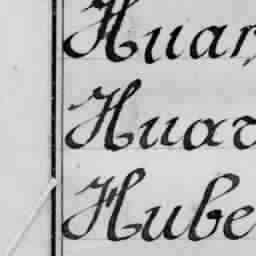 Huar
Huar
Hube